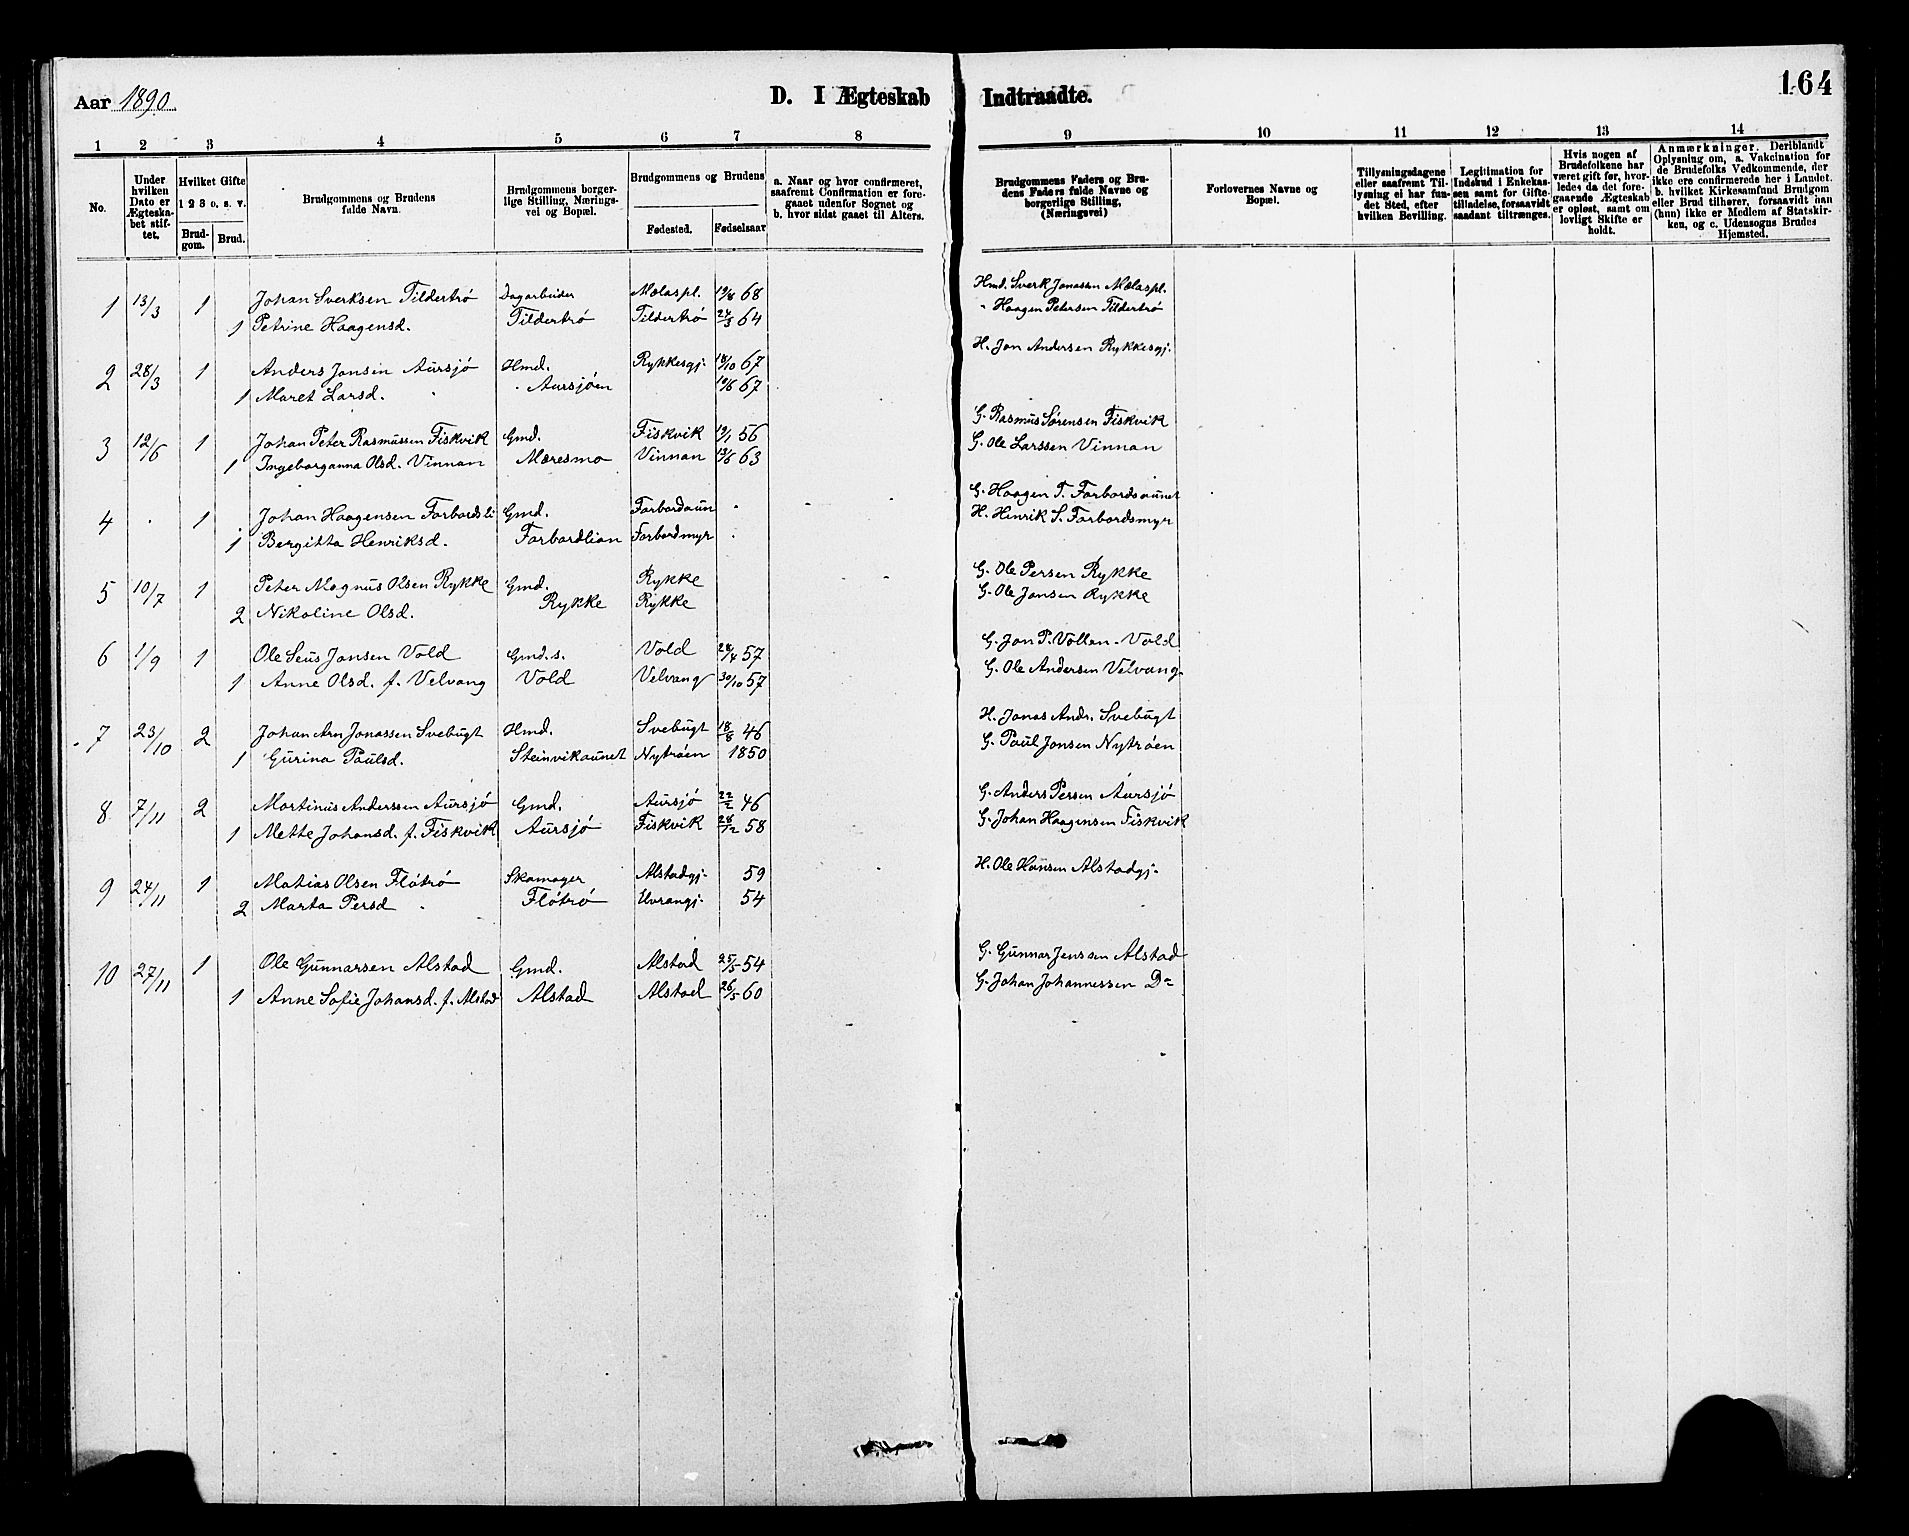 Aar 1890. D. I Ægteskab Indtraadte. 164
1 2 3 4 5 6 7 8 9 10 11 12 13 14
No.
Under hvilken Dato er Ægteskabet stiftet.
Hvilket Gifte 1 2 3 o. s. v.
Brudgom. Brud.
Brudgommens og Brudens fulde Navn.
Brudgommens borgerlige Stilling, Næringsvei og Bopæl.
Brudgommens og Brudens
Fødested. Fødselsaar
a. Naar og hvor confirmeret, saafremt Confirmation er foregaaet udenfor Sognet og b, hvor sidst gaaet til Alters.
Brudgommens Faders og Brudens Faders fulde Navne og borgerlige Stilling, (Næringsvei)
Forlovernes Navne og Bopæl.
Tillysningsdagene eller saafremt Tillysning ei har fundet Sted, efter hvilken Bevilling.
Legitimation for Indskud i Enkekassen samt for Giftetilladelse, forsaavidt saadant tiltrænges.
Hvis nogen af Brudefolkene har været gift før, hvorledes da det foregaaende Ægteskab er opløst, samt om lovligt Skifte er holdt.
Anmærkninger. Deriblandt Oplysning om, a. Vakcination for de Brudefolks Vedkommende, der ikke ere confirmerede her i Landet. b. hvilket Kirkesamfund Brudgom eller Brud tilhører, forsaavidt han (hun) ikke er Medlem af Statskirken, og c. Udensogns Brudes Hjemsted.
1 13/3 1 Johan Sverksen Tildertrö Dagarbeider Mælaspl. 19/8 68 Hmd. Sverk Jonassen Mælaspl.
1 Petrine Haagensd. Tildertrö Tildertrö 24/3 64 " Haagen Petersen Tildertrö
2 28/3 1 Anders Jonsen Aursjö Hmd. Rykkesgj. 18/10 67 H. Jon Andersen Rykkesgj.
1 Maret Larsd. " Aursjöen 19/6 67
3 12/6 1 Johan Peter Rasmussen Fiskvik Gmd. Fiskvik 19/1 56 G. Rasmus Sørensen Fiskvik
1 Ingeborganna Olsd. Vinnan Mæresmo Vinnan 13/6 63 G. Ole Larssen Vinnan
4 " 1 Johan Haagensen Forbordsli Gmd. Forbordaun " G. Haagen T. Forbordsaunet
1 Bergitta Henriksd. Forbordlian Forbordmyr " H. Henrik S. Forbordsmyr
5 10/7 1 Peter Magnus Olsen Rykke Gmd. Rykke G. Ole Persen Rykke
2 Nikoline Olsd. Rykke Rykke G. Ole Jonsen Rykke
6 1/9 1 Ole Seus Jonsen Vold Gmd.s. Vold 28/4 57 G. Jon P. Vollan - Vold
1 Anne Olsd. f. Velvang Vold Velvang 30/10 57 G. Ole Andersen Velvang.
7 23/10 2 Johan Arn Jonassen Svebugt Hmd. Svebugt 18/8 46 H. Jonas Andr. Svebugt
1 Gurina Paulsd. Steinvikaunet Nytröen 1850 G. Paul Jonsen Nytröen
8 7/11 2 Martinus Anderssen Aursjö Gmd. Aursjö 22/2 46 G. Anders Persen Aursjö
1 Mette Johansd. f. Fiskvik Aursjö Fiskvik 28/12 58 G. Johan Haagensen Fiskvik
9 24/11 1 Matias Olsen Flötrö Skomager Alstadgj. 59 H. Ole Hansen Alstadgj.
2 Marta Persd " Flötrö Uvrangj. 54
10 27/11 1 Ole Gunnarsen Alstad Gmd. Alstad 25/5 54 G. Gunnar Jenssen Alstad
1 Anne Sofie Johansd. f. Alstad Alstad Alstad 26/5 60 G. Johan Johannessen Do